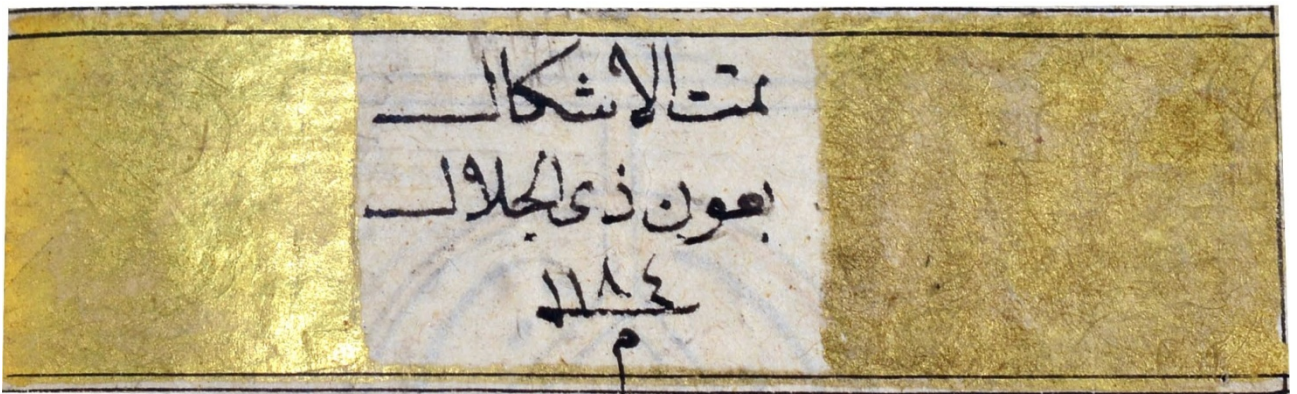 تمت الاشكال
بعون ذى الجلال
١١٨٤
م